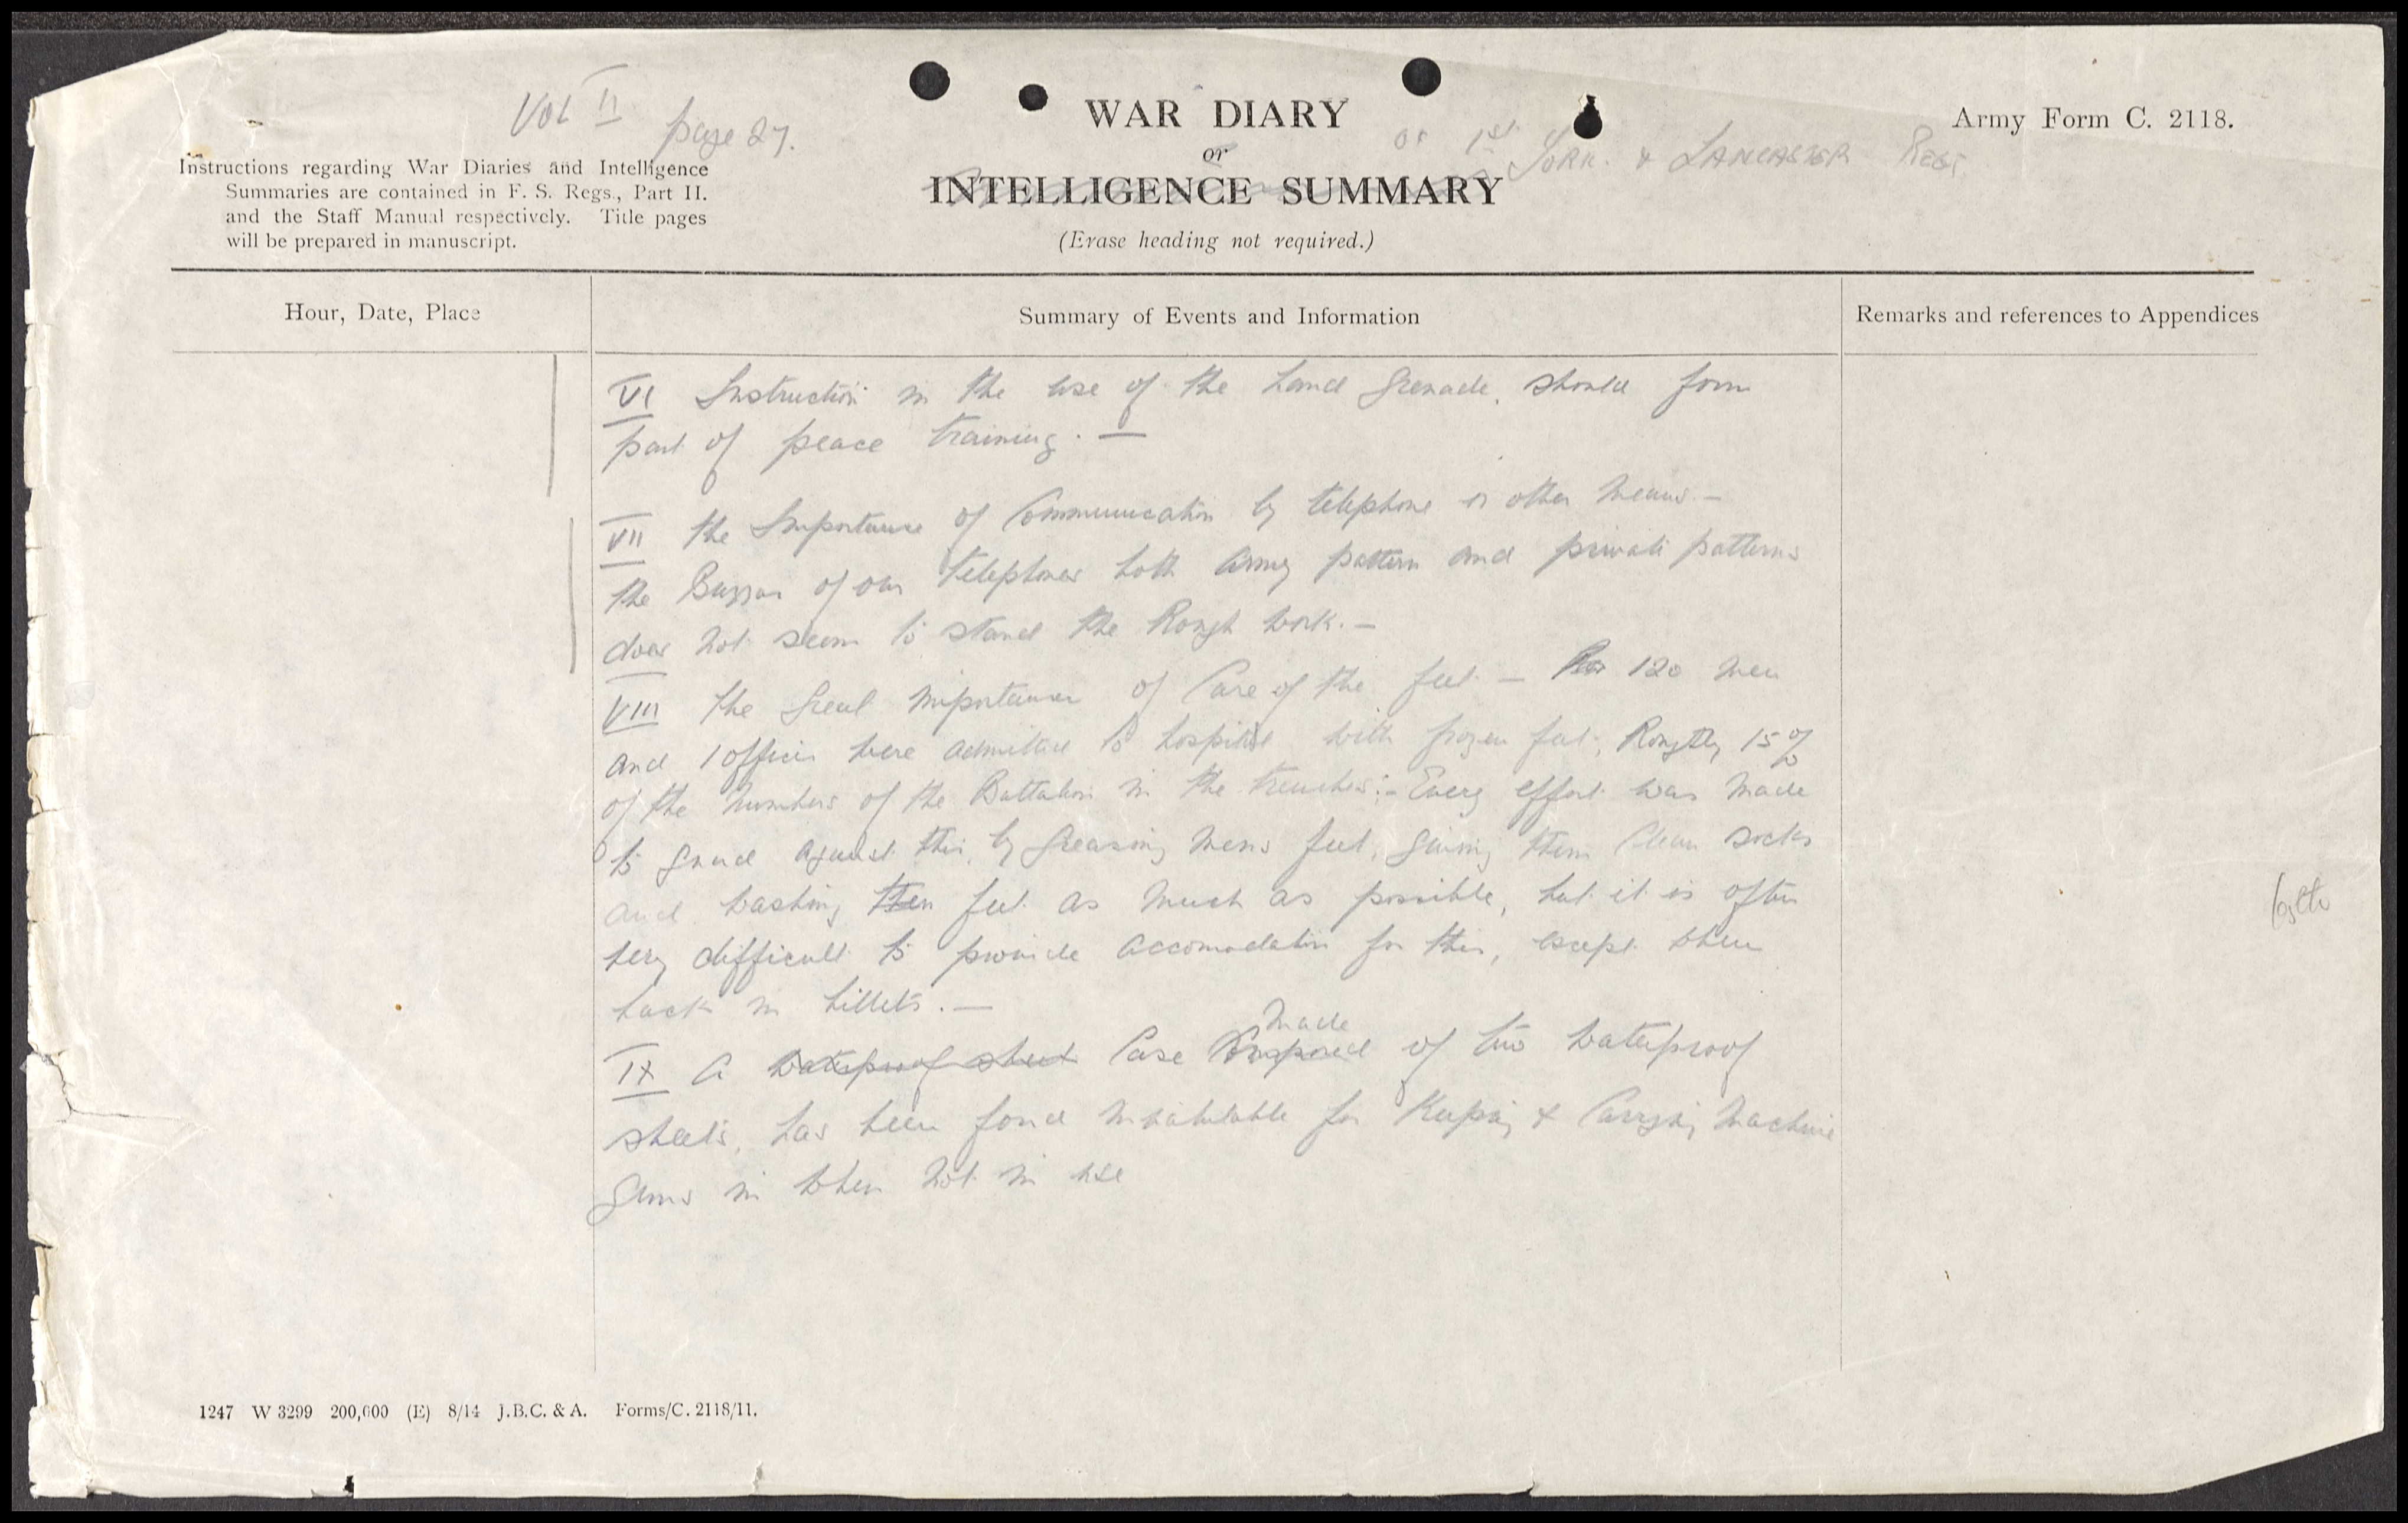 Vol II page 27.
WAR DIARY
or
INTELLIGENCE SUMMARY
(Erase heading not required.)
of 1st York. & Lancaster Regt.
Army Form C. 2118.
Instructions regarding War Diaries and Intelligence
Summaries are contained in F. S. Regs., Part II.
and the Staff Manual respectively. Title pages
will be prepared in manuscript.
Hour, Date, Place
Summary of Events and Information
Remarks and references to Appendices
VI Instruction in the use of the hand Grenade, should form
part of peace training. —
VII the Importance of Communication by telephone or other means —
the Buzzar of our telephones both army pattern and private patterns
does not seem to stand the Rough work. —
VIII The Great importance of Care of the feet — 120 men
and 1 officer were admitted to hospital with frozen feet, Roughly 15%
of the numbers of the Battalion in the trenches :- Every effort was made
to guard against this, by greasing mens feet, giving them clean socks
and washing their feet as much as possible, but it is often
very difficult to provide accomodation for this, except when
back in billets. —
IX A waterproof sheet Case Composed made of two waterproof
sheets, has been found invaluable for Keeping & Carrying machine
guns in when not in use
1247 W 3299 200,000 (E) 8/14 J.B.C. & A. Forms/C. 2118/11.